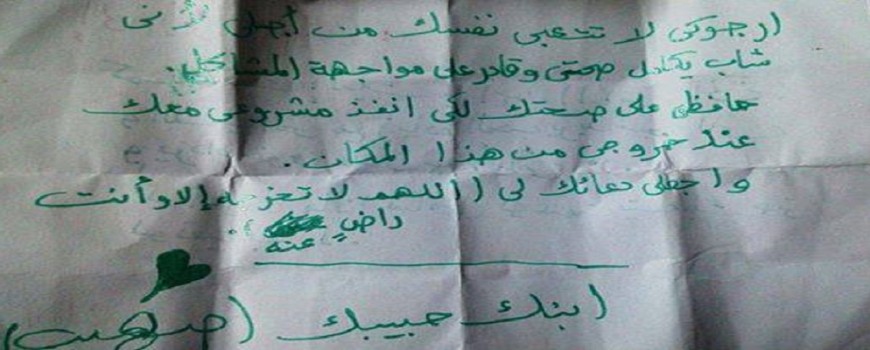 ارجوكي لا تتعبي نفسك من أجلي لأنى
شاب بكامل صحتي وقادر على مواجهة المشاكل.
حافظى على صحتك لكى انفذ مشروعى معك
عند خروجى من هذا المكان.
واجعلى دعائك لى ((اللهم لا تعزه إلا وأنت
راضٍ عنه
ابنك حبيبك (صهيب)